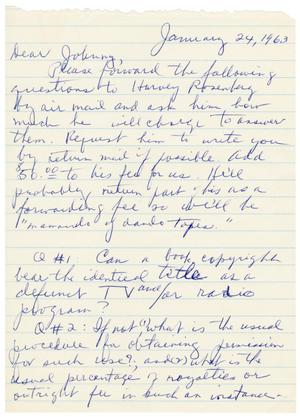 January 24, 1963
Dear Johnny,
Please forward the following
questions to Harvey Rosenberg
by air mail and ask him how
much he will charge to answer
them. Request him to write you
by return mail if possible. Add
$50.00 to his fee for us. He'll
probably return part his as a
forwarding fee so will be
"
Q #1: Can a book copyright
bear the identical title as a
defunct TV and/or radio
program?
Q #2: If not "What is the usual
procedure for obtaining permission
for such use?, and 2) what is the
usual percentage of royalties or
outright fee in such an instance.